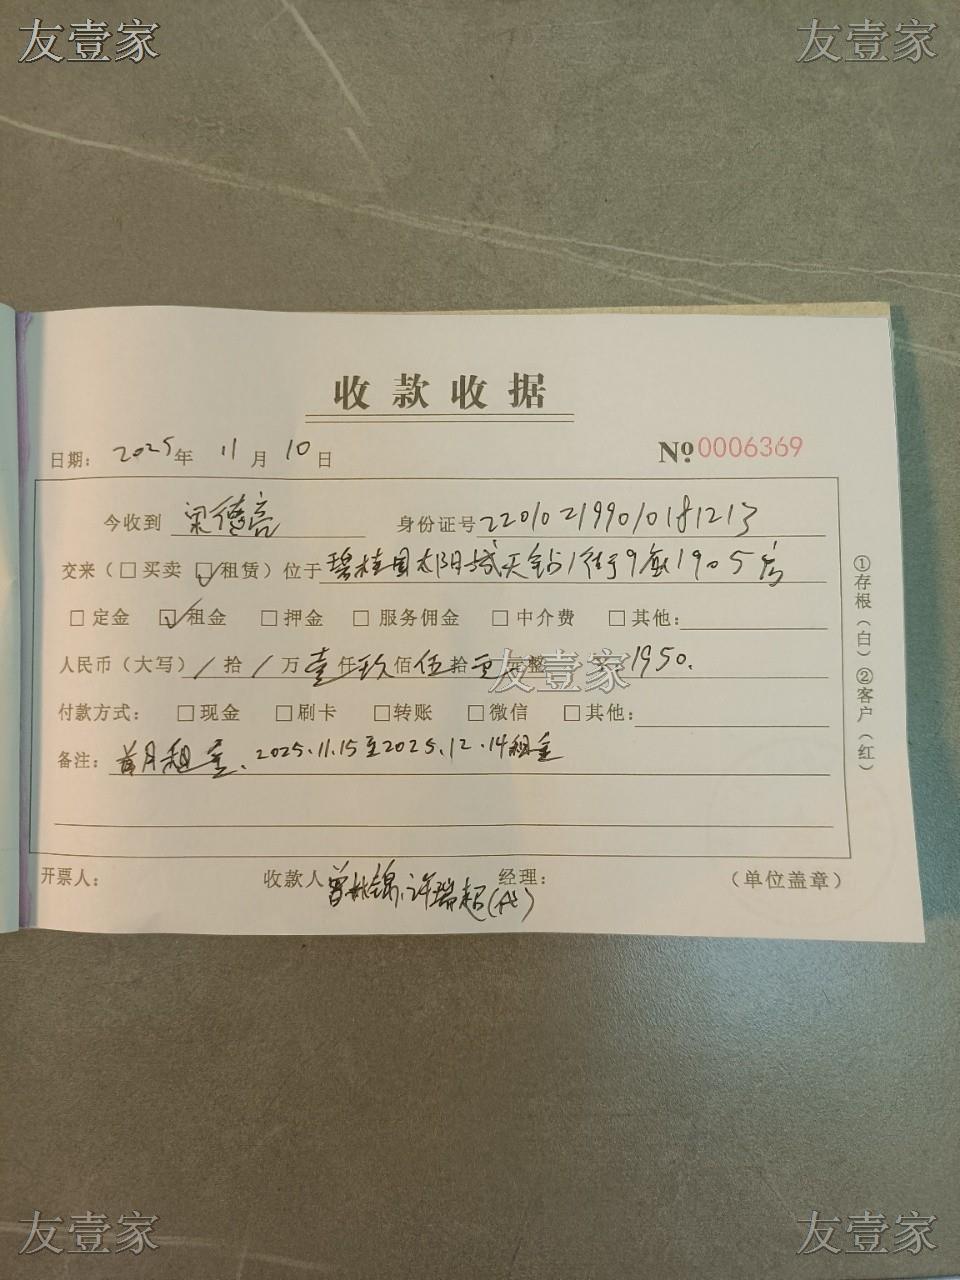 友壹家 友壹家
收款收据
日期： 2025年 11月 10日 № 0006369
今收到 梁德亮 身份证号 220102199010181213
交来（□买卖 ☑租赁）位于 碧桂园太阳城天钻1街9座1905房
□定金 ☑租金 □押金 □服务佣金 □中介费 □其他：
人民币（大写） / 拾 / 万 壹 仟 玖 佰 伍 拾 元整 1950.
友壹家
付款方式： □现金 □刷卡 □转账 □微信 □其他：
备注： 首月租金、2025.11.15至2025.12.14租金
开票人： 收款人 曾 锦、许瑞超(代) 经理： （单位盖章）
①存根（白）②客户（红）
友壹家 友壹家